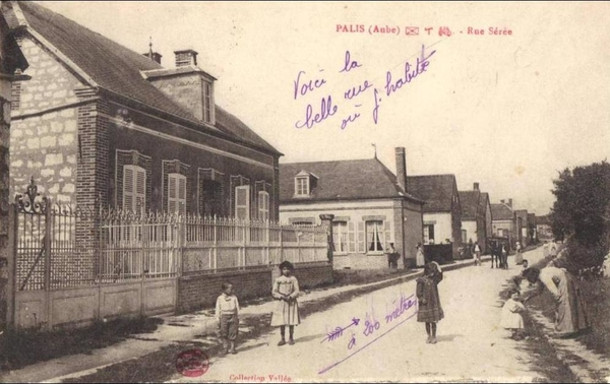 PALIS (Aube) - Rue Sérée
Voici la
belle rue
où j'habite
à 200 mètres
Collection Vallée